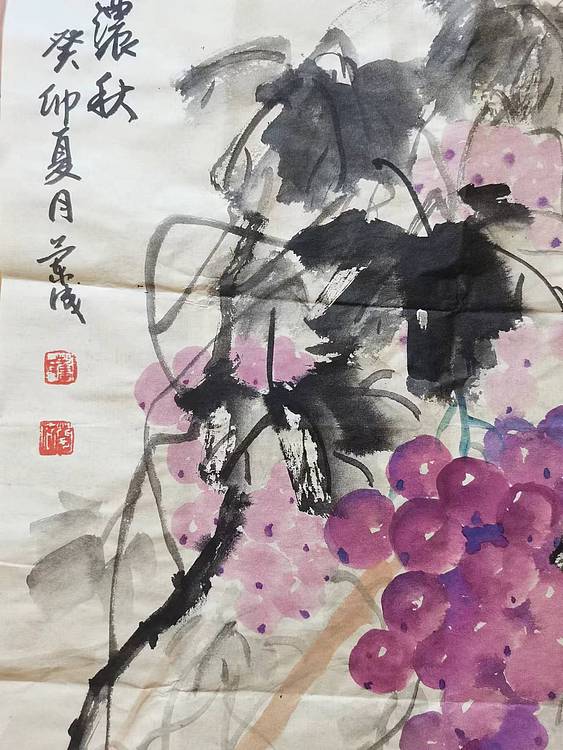 濃秋
癸卯夏月